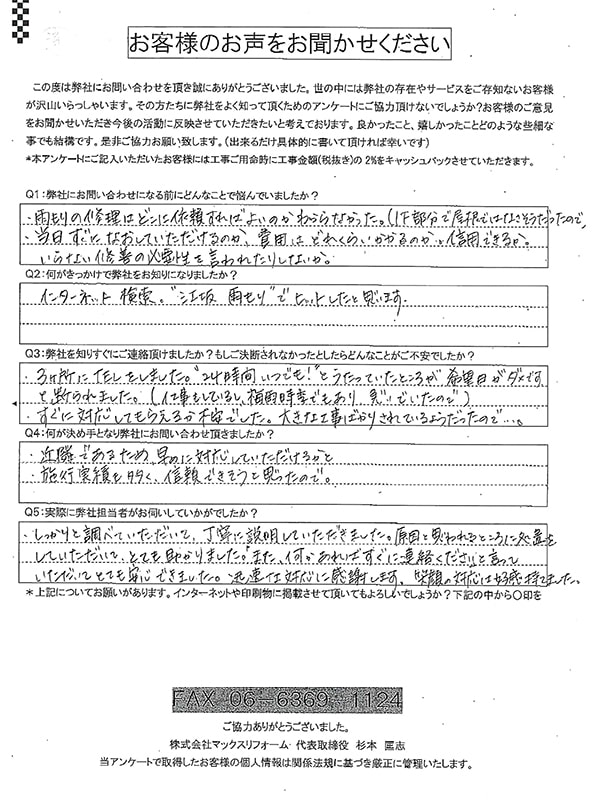 お客様のお声をお聞かせください
この度は弊社にお問い合わせを頂き誠にありがとうございました。世の中には弊社の存在やサービスをご存知ないお客様
が沢山いらっしゃいます。その方たちに弊社をよく知って頂くためのアンケートにご協力頂けないでしょうか?お客様のご意見
をお聞かせいただき今後の活動に反映させていただきたいと考えております。良かったこと、嬉しかったことどのような些細な
事でも結構です。是非ご協力お願い致します。(出来るだけ具体的に書いて頂ければ幸いです)
*本アンケートにご記入いただいたお客様には工事ご用命時に工事金額(税抜き)の 2%をキャッシュバックさせていただきます。
Q1:弊社にお問い合わせになる前にどんなことで悩んでいましたか?
・雨もりの修理はどこに依頼すればよいのかわからなかった。(1F部分で屋根ではなさそうだったので)
・当日すぐになおしていただけるのか、費用はどれくらいかかるのか、信用できるか。
いらない修善の必要性を言われたりしないか。
Q2:何がきっかけで弊社をお知りになりましたか?
インターネット検索。"江坂 雨もり"でヒットしたと思います。
Q3:弊社を知りすぐにご連絡頂けましたか?もしご決断されなかったとしたらどんなことがご不安でしたか?
・3ヶ所にTELをしました。"24時間いつでも!"とうたっていたところが希望日がダメです
と断られました。(仕事もしているし、梅雨時季でもあり、急いでいたので)
・すぐに対応してもらえるか不安でした。大きな工事ばかりされているようだったので…。
Q4:何が決め手となり弊社にお問い合わせ頂きましたか?
・近隣であるため、早めに対応していただけるかと
・施行実績も多く、信頼できそうと思ったので。
Q5:実際に弊社担当者がお伺いしていかがでしたか?
・しっかりと調べていただいて、丁寧に説明していただきました。原因と思われるところに処置を
していただいて、とても助かりました。"また、何かあればすぐに連絡ください"と言って
いただいてとても安心できました。迅速な対応に感謝します。笑顔の対応は好感持てました。
*上記についてお願いがあります。インターネットや印刷物に掲載させて頂いてもよろしいでしょうか?下記の中から〇印を
FAX 06-6369-1124
ご協力ありがとうございました。
株式会社マックスリフォーム 代表取締役 杉本 匡志
当アンケートで取得したお客様の個人情報は関係法規に基づき厳正に管理いたします。